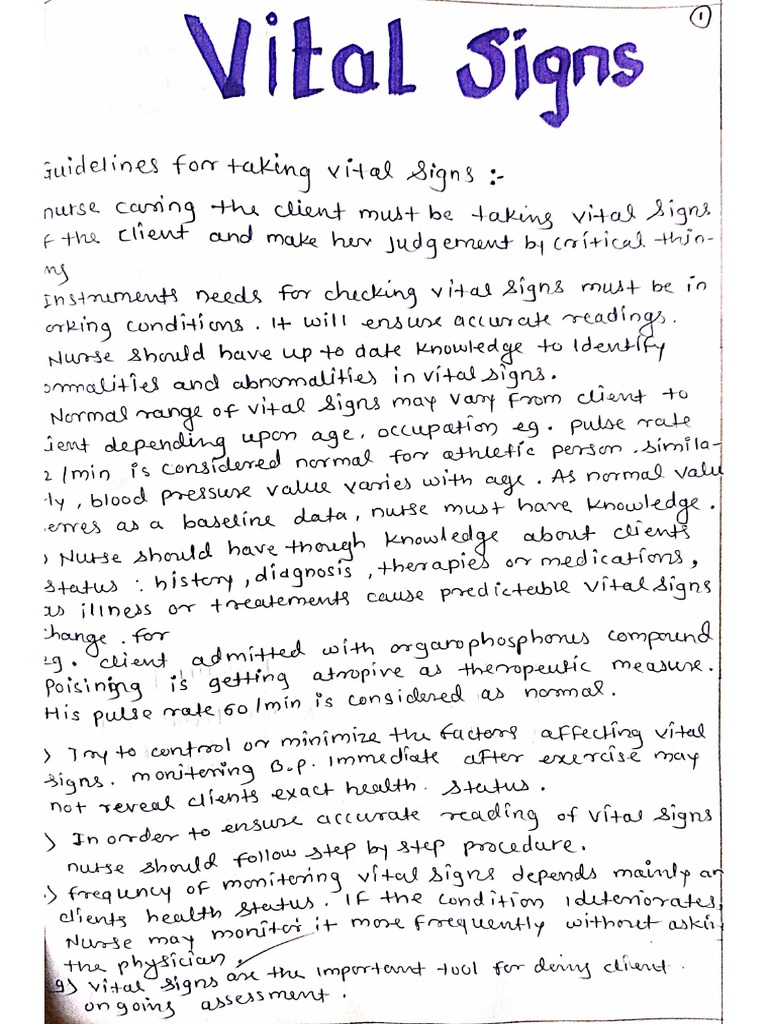 1
Vital Signs
Guidelines for taking vital signs :-
nurse caring the client must be taking vital signs
f the client and make her judgement by critical thin-
ng
Instruments needs for checking vital signs must be in
orking conditions. It will ensure accurate readings.
Nurse should have up to date knowledge to Identify
ormalities and abnomalities in vital signs.
Normal range of vital signs may vary from client to
ient depending upon age, occupation eg. pulse rate
2 /min is considered normal for athletic person. simila-
ly, blood pressure value varies with age. As normal valu
erres as a baseline data, nurse must have knowledge.
) Nurse should have though knowledge about clients
status : history, diagnosis, therapies or medications,
as illness or treatements cause predictable vital signs
change. for
eg. client admitted with organophosphorus compound
Poisining is getting atropive as theropeutic measure.
His pulse rate 60/min is considered as normal.
) Try to control or minimize the factors affecting vital
signs. monitering B.p. Immediate after exercise may
not reveal clients exact health. status.
) In order to ensure accurate reading of vital signs
nurse should follow step by step procedure.
) frequncy of monitering vital signs depends mainly an
clients health status. If the condition deteriorates,
Nurse may monitor it more frequently without askin
the physician.
g) vital signs are the important tool for doing client
ongoing assessment.